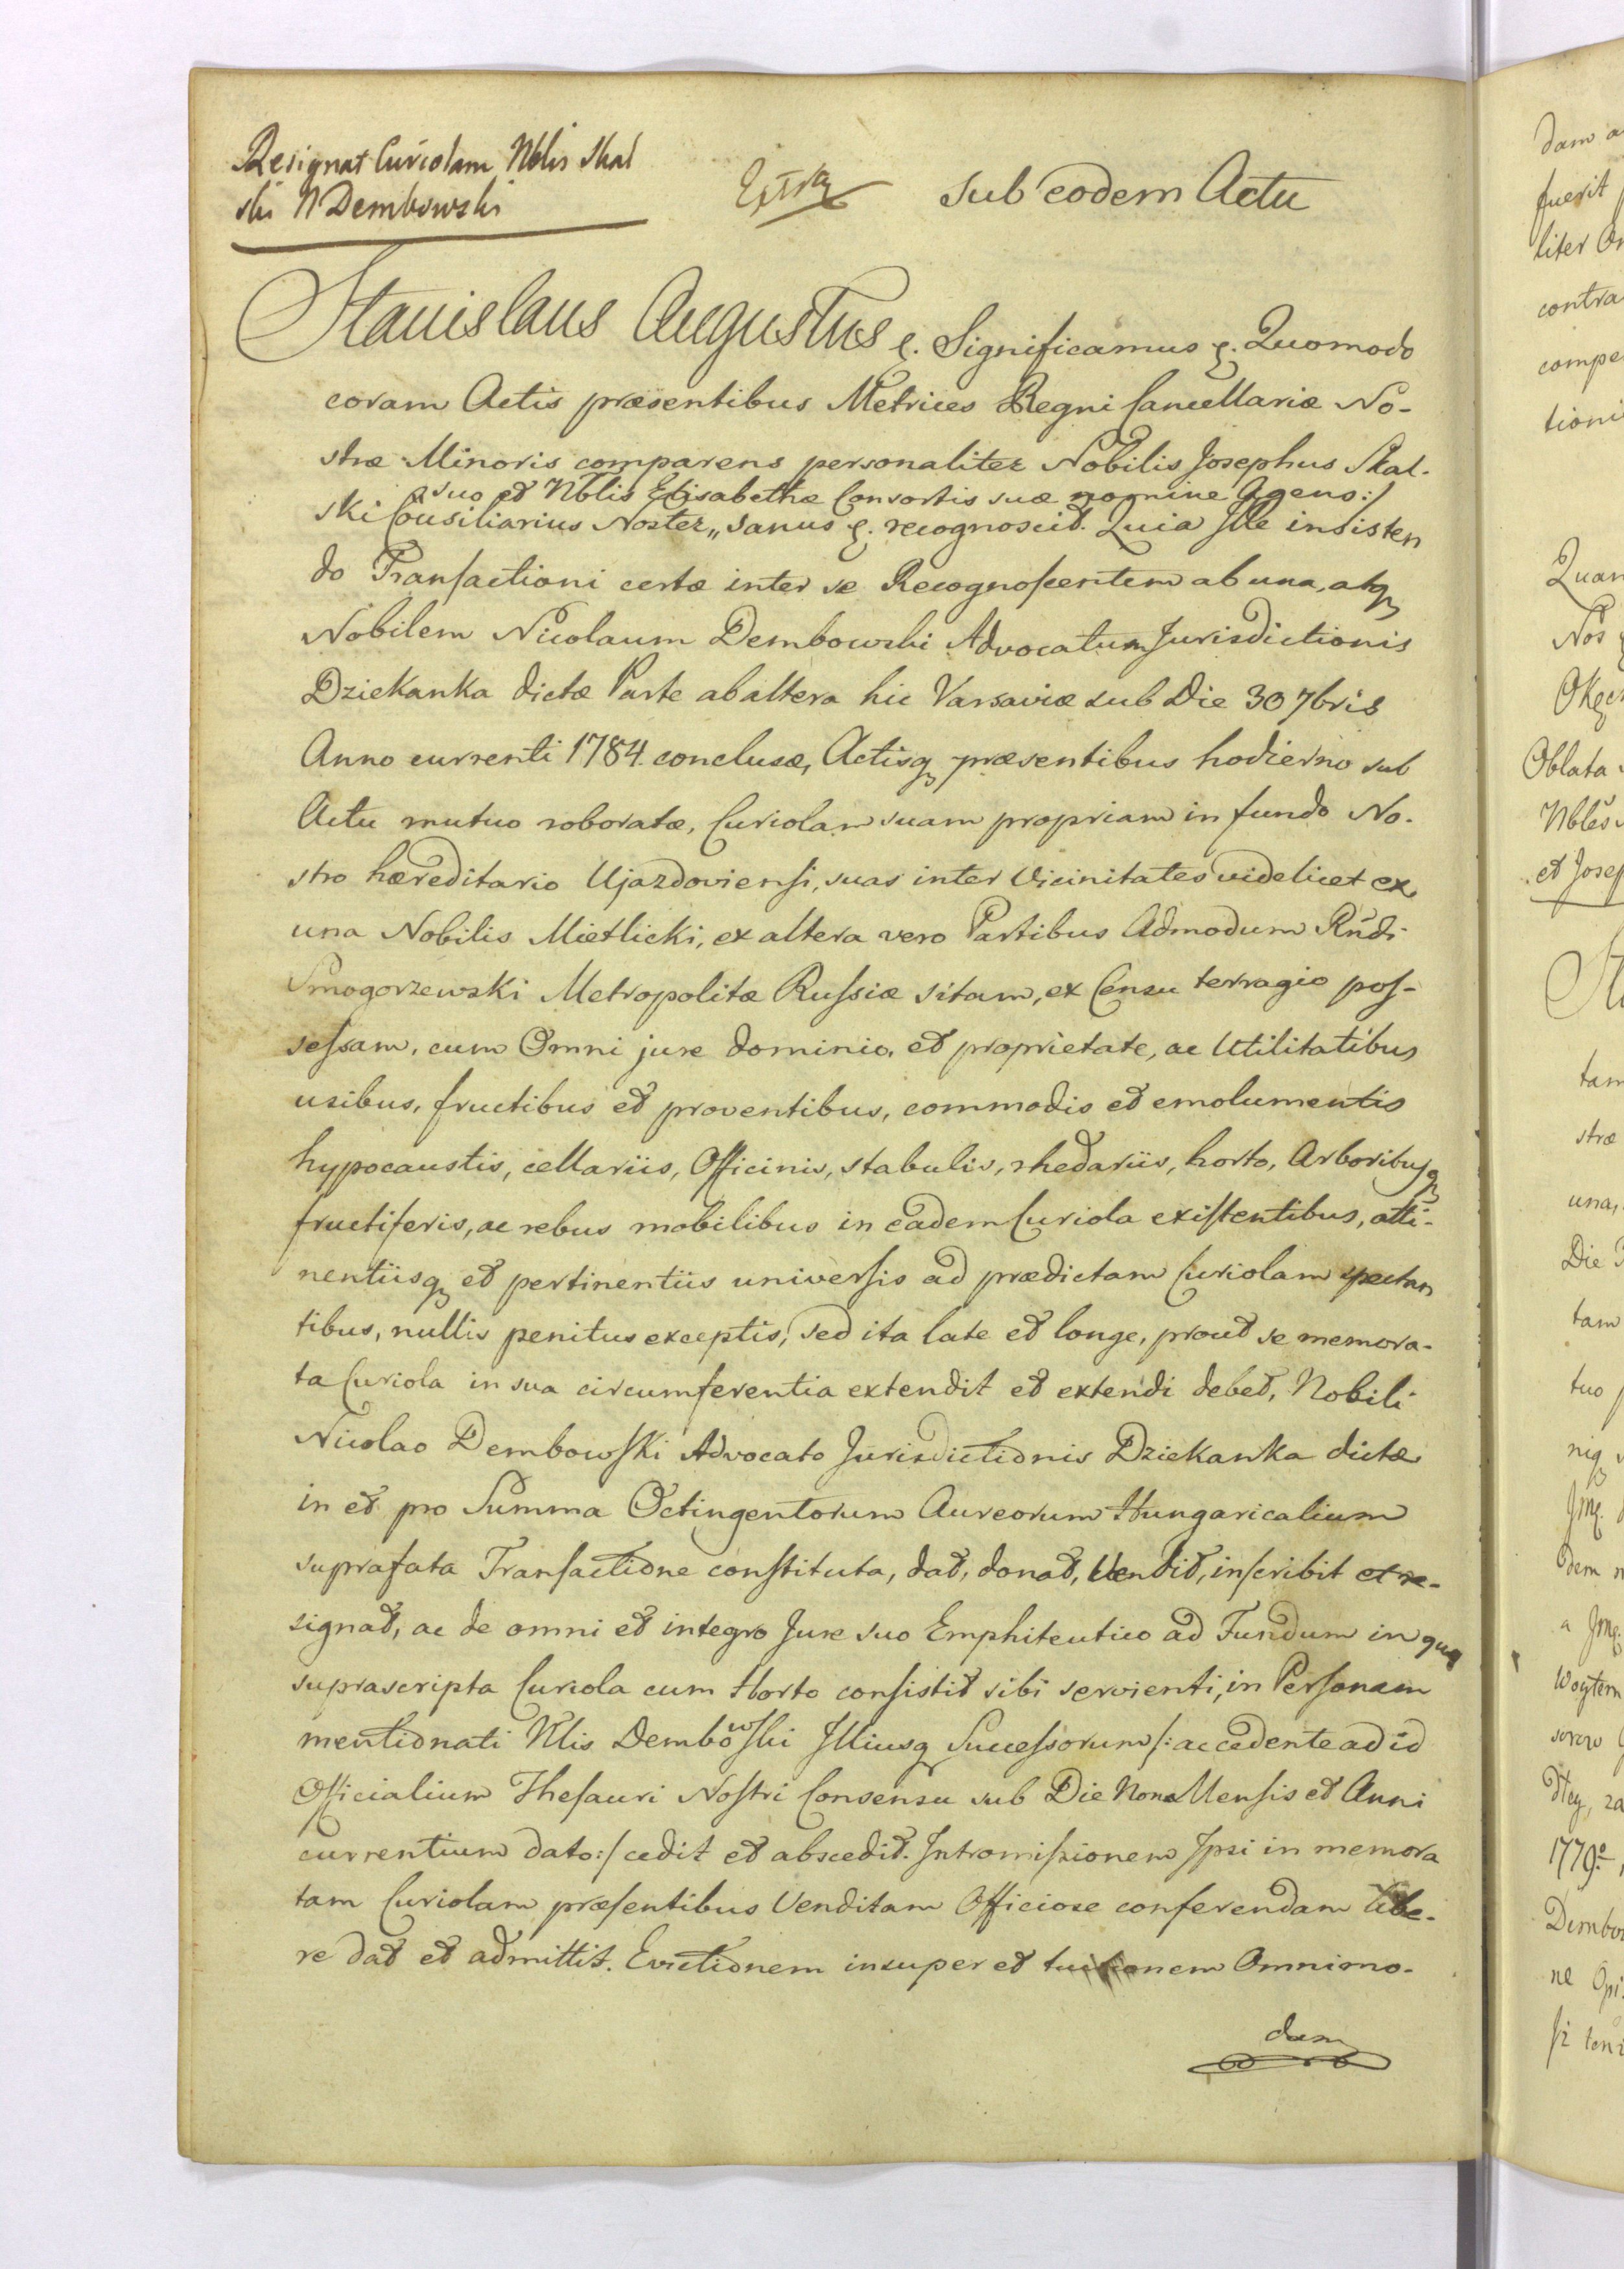 Resignat Curiolam Nblis Skal
ski N Dembowski
Extra
sub eodem Actu
Stanislaus Augustus &. Significamus &. Quomodo
coram Actis præsentibus Metrices Regni Cancellariæ No-
stræ Minoris comparens personaliter Nobilis Josephus Skal-
suo et Nblis Elisabethæ Consortis suæ nomine Agens:/
ski Consiliarius Noster„ sanus &. recognoscit. Quia Ille insisten
do Transactioni certæ inter se Recognoscentem ab una, atq
Nobilem Nicolaum Dembowski Advocatum Jurisdictionis
Dziekanka dictæ Parte ab altera hic Varsaviæ sub Die 30 7bris
Anno currenti 1784. conclusæ, Actisq præsentibus hodierno sub
Actu mutuo roboratæ, Curiolam suam propriam in fundo No-
stro hæreditario Ujazdoviensi, suas inter Vicinitates videlicet ex
una Nobilis Mietlicki, ex altera vero Partibus Admodum Rndi
Smogorzewski Metropolitæ Russiæ sitam, ex Censu terragio pos-
sessam, cum Omni jure dominio, et proprietate, ac Utilitatibus
usibus, fructibus et proventibus, commodis et emolumentis
hypocaustis, cellariis, Officinis, stabulis, rhedariis, horto, Arboribusq
fructiferis, ac rebus mobilibus in eadem Curiola existentibus, atti-
nentiisq et pertinentiis universis ad prædictam Curiolam spectan
tibus, nullis penitus exceptis, sed ita late et longe, prout se memora-
ta Curiola in sua circumferentia extendit et extendi debet, Nobili
Nicolao Dembowski Advocato Jurisdictionis Dziekanka dictæ
in et pro Summa Octingentorum Aureorum Hungaricalium
suprafata Transactione constituta, dat, donat, Vendit, inscribit et re-
signat, ac de omni et integro Jure suo Emphiteutico ad Fundum in quo
suprascripta Curiola cum Horto consistit sibi servienti, in Personam
mentionati Nlis Dembowski Illiusq Successorum /: accedente ad id
Officialium Thesauri Nostri Consensu sub Die Nona Mensis et Anni
currentium dato:/ cedit et abscedit. Intromissionem Ipsi in memora
tam Curiolam præsentibus Venditam Officiose conferendam libe-
re dat et admittit. Evictionem insuper et tuitionem Omnimo-
dam
dam
fuerit
liter
contra
tioni
Nos
Oblata
et Josep
tam
stræ
una,
Die
tam
tuo
dem
a
1779º
ne